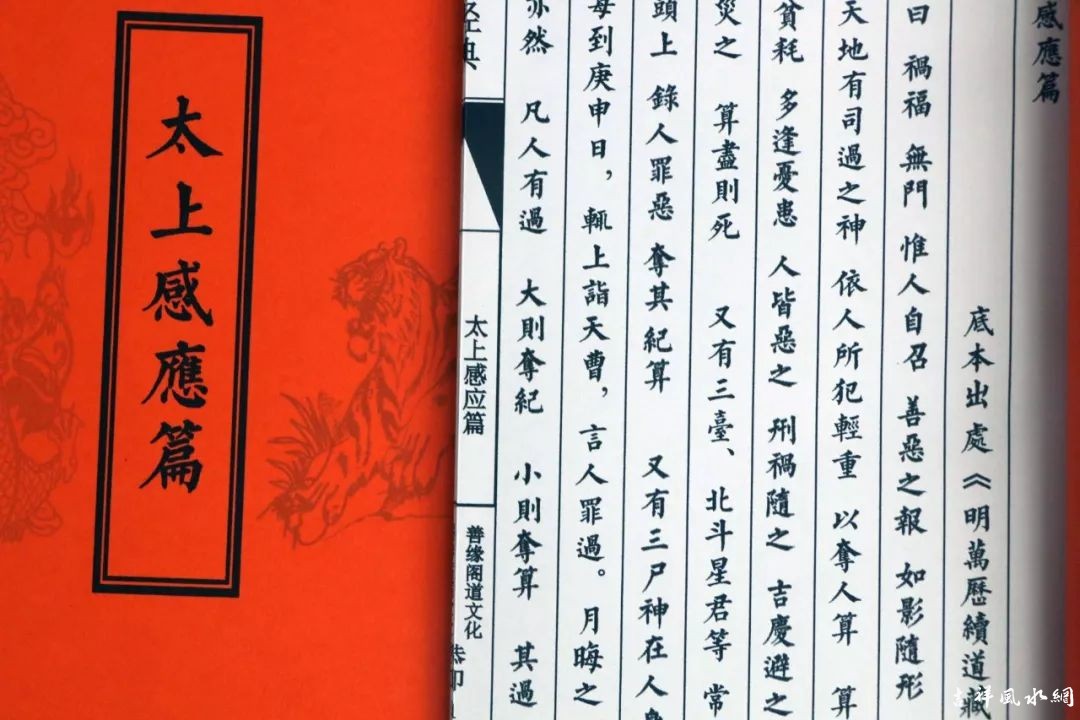 太上感應篇
感應篇
底本出處《明萬曆續道藏
曰 禍福 無門 惟人自召 善惡之報 如影隨形
天地有司過之神 依人所犯輕重 以奪人算 算
貧耗 多逢憂患 人皆惡之 刑禍隨之 吉慶避之
災之 算盡則死 又有三臺、北斗星君等 常
頭上 錄人罪惡 奪其紀算 又有三尸神在人身
每到庚申日，輒上詣天曹，言人罪過。月晦之
亦然 凡人有過 大則奪紀 小則奪算 其過
太上感应篇
善缘阁道文化
恭印
吉祥風水網